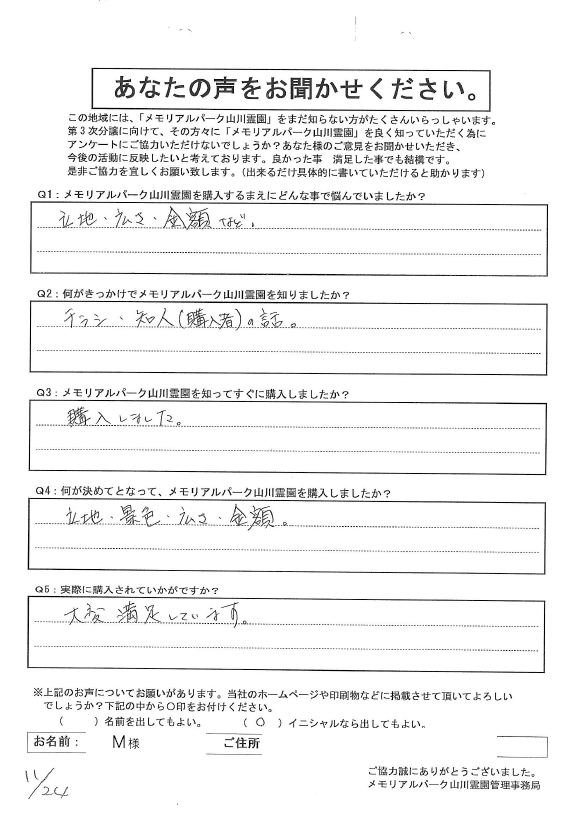 あなたの声をお聞かせください。
この地域には、「メモリアルパーク山川霊園」をまだ知らない方がたくさんいらっしゃいます。
第3次分譲に向けて、その方々に「メモリアルパーク山川霊園」を良く知っていただく為に
アンケートにご協力いただけないでしょうか？あなた様のご意見をお聞かせいただき、
今後の活動に反映したいと考えております。良かった事　満足した事でも結構です。
是非ご協力を宜しくお願い致します。（出来るだけ具体的に書いていただけると助かります）
Q1：メモリアルパーク山川霊園を購入するまえにどんな事で悩んでいましたか？
立地・広さ・金額など。
Q2：何がきっかけでメモリアルパーク山川霊園を知りましたか？
チラシ・知人（購入者）の話。
Q3：メモリアルパーク山川霊園を知ってすぐに購入しましたか？
購入しました。
Q4：何が決めてとなって、メモリアルパーク山川霊園を購入しましたか？
立地・景色・広さ・金額。
Q5：実際に購入されていかがですか？
大変満足しています。
※上記のお声についてお願いがあります。当社のホームページや印刷物などに掲載させて頂いてよろしい
でしょうか？下記の中から〇印をお付けください。
（　　）名前を出してもよい。　（ 〇 ）イニシャルなら出してもよい。
お名前：　M様　ご住所
ご協力誠にありがとうございました。
11/24　メモリアルパーク山川霊園管理事務局